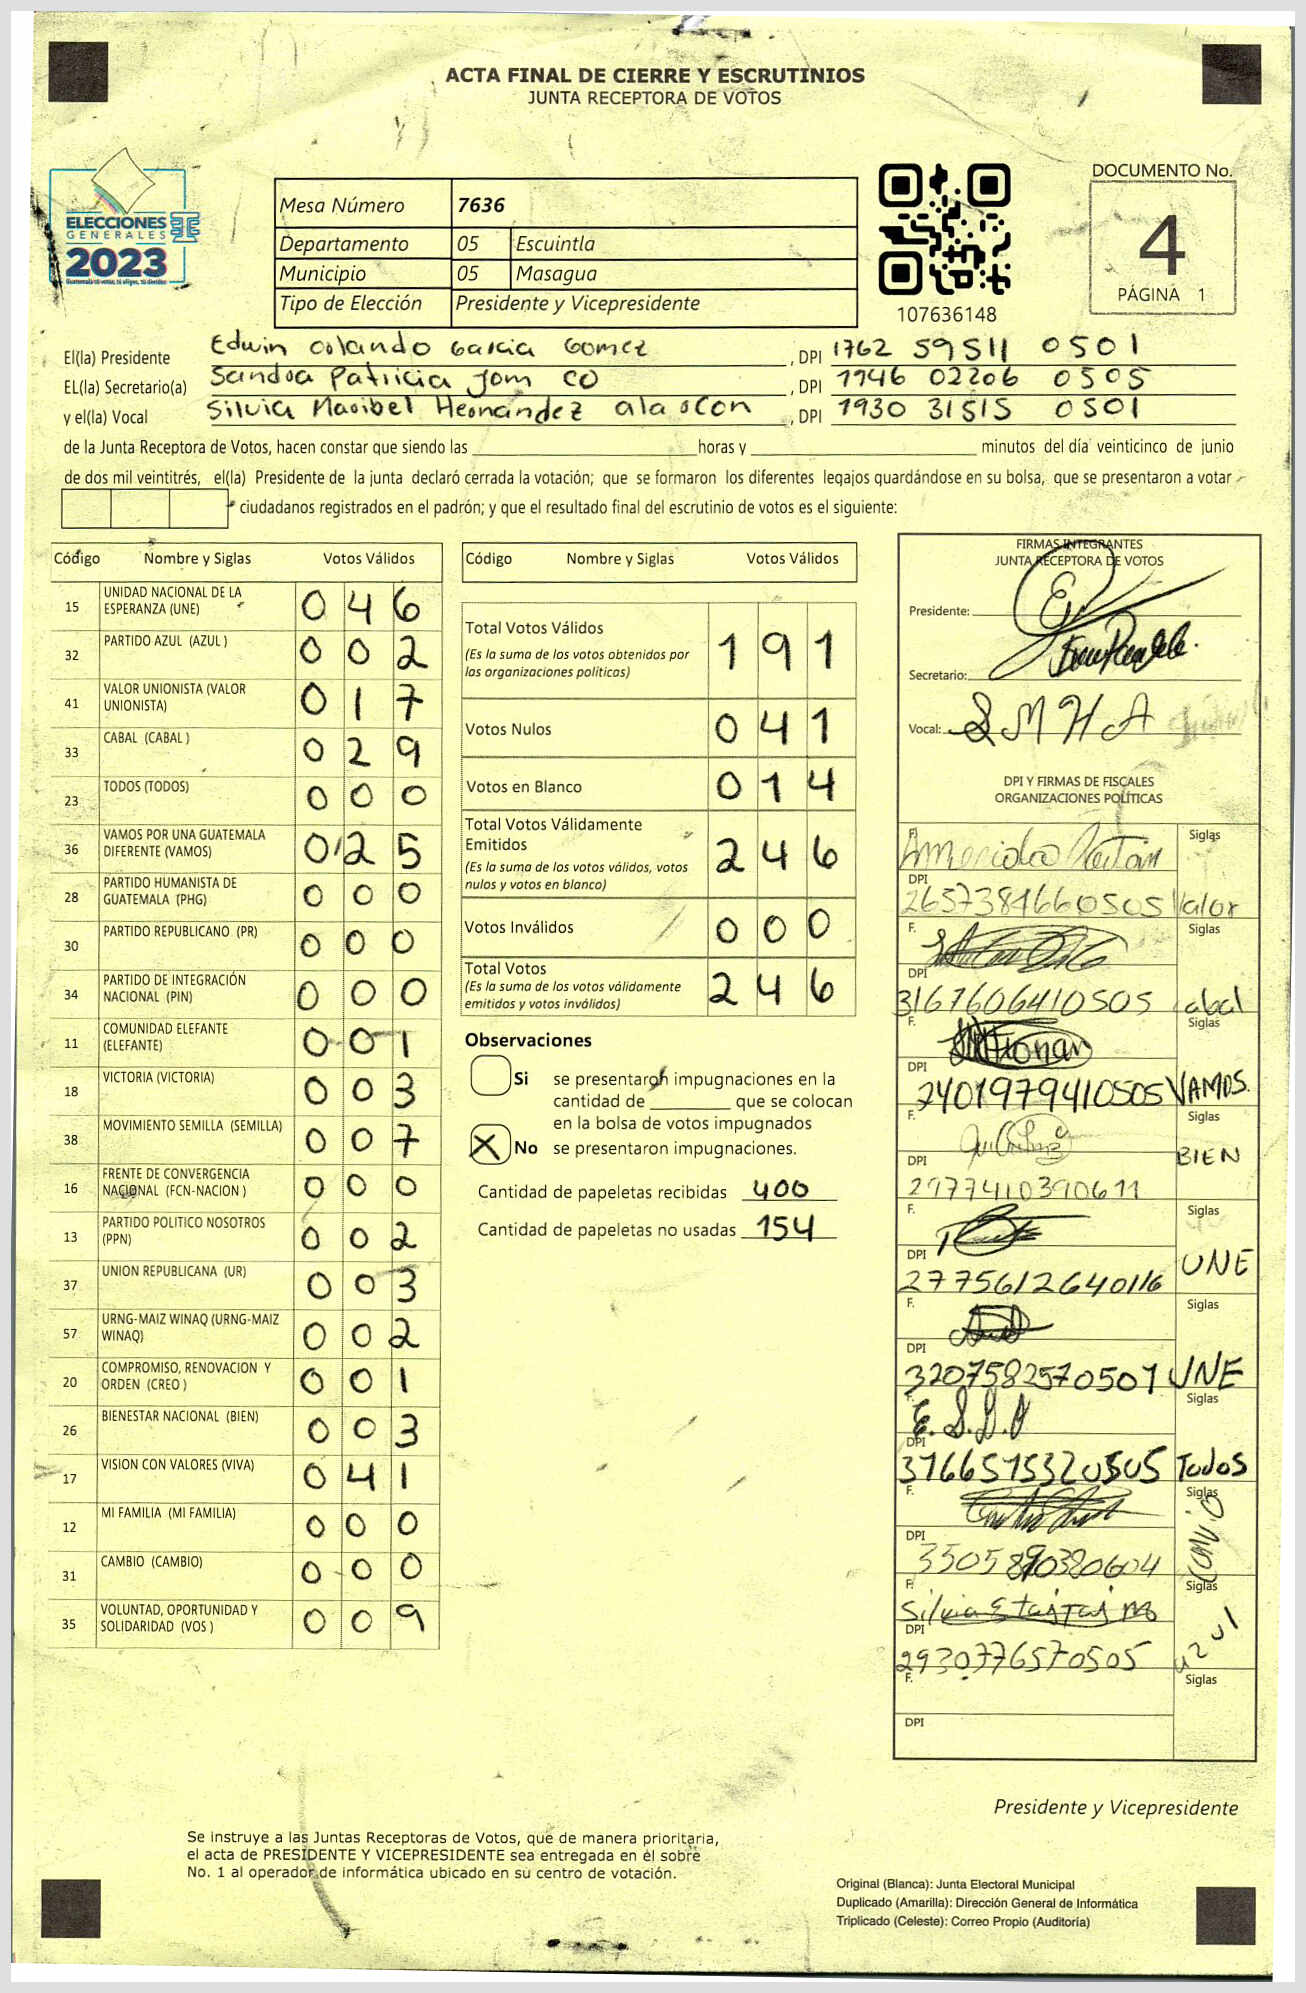 ACTA FINAL DE CIERRE Y ESCRUTINIOS
JUNTA RECEPTORA DE VOTOS
ELECCIONES
GENERALES
2023
Mesa Número 7636
Departamento 05 Escuintla
Municipio 05 Masagua
Tipo de Elección Presidente y Vicepresidente
107636148
DOCUMENTO No.
4
PÁGINA 1
El(la) Presidente Edwin Orlando Garcia Gomez, DPI 1762 59511 0501
EL(la) Secretario(a) Sandra Patricia Jom CO, DPI 1946 02206 0505
y el(la) Vocal Silvia Maribel Hernández alarcon, DPI 1930 31515 0501
de la Junta Receptora de Votos, hacen constar que siendo las ____ horas y ____ minutos del día veinticinco de junio
de dos mil veintitrés, el(la) Presidente de la junta declaró cerrada la votación; que se formaron los diferentes legajos guardándose en su bolsa, que se presentaron a votar
ciudadanos registrados en el padrón; y que el resultado final del escrutinio de votos es el siguiente:
Código Nombre y Siglas Votos Válidos
15 UNIDAD NACIONAL DE LA ESPERANZA (UNE) 0 4 6
32 PARTIDO AZUL (AZUL ) 0 0 2
41 VALOR UNIONISTA (VALOR UNIONISTA) 0 1 7
33 CABAL (CABAL ) 0 2 9
23 TODOS (TODOS) 0 0 0
36 VAMOS POR UNA GUATEMALA DIFERENTE (VAMOS) 0 2 5
28 PARTIDO HUMANISTA DE GUATEMALA (PHG) 0 0 0
30 PARTIDO REPUBLICANO (PR) 0 0 0
34 PARTIDO DE INTEGRACIÓN NACIONAL (PIN) 0 0 0
11 COMUNIDAD ELEFANTE (ELEFANTE) 0 0 1
18 VICTORIA (VICTORIA) 0 0 3
38 MOVIMIENTO SEMILLA (SEMILLA) 0 0 7
16 FRENTE DE CONVERGENCIA NACIONAL (FCN-NACION ) 0 0 0
13 PARTIDO POLITICO NOSOTROS (PPN) 0 0 2
37 UNION REPUBLICANA (UR) 0 0 3
57 URNG-MAIZ WINAQ (URNG-MAIZ WINAQ) 0 0 2
20 COMPROMISO, RENOVACION Y ORDEN (CREO ) 0 0 1
26 BIENESTAR NACIONAL (BIEN) 0 0 3
17 VISION CON VALORES (VIVA) 0 4 1
12 MI FAMILIA (MI FAMILIA) 0 0 0
31 CAMBIO (CAMBIO) 0 0 0
35 VOLUNTAD, OPORTUNIDAD Y SOLIDARIDAD (VOS ) 0 0 9
Código Nombre y Siglas Votos Válidos
Total Votos Válidos 1 9 1
(Es la suma de los votos obtenidos por
las organizaciones políticas)
Votos Nulos 0 4 1
Votos en Blanco 0 1 4
Total Votos Válidamente
Emitidos 2 4 6
(Es la suma de los votos válidos, votos
nulos y votos en blanco)
Votos Inválidos 0 0 0
Total Votos 2 4 6
(Es la suma de los votos válidamente
emitidos y votos inválidos)
Observaciones
Si se presentaron impugnaciones en la
cantidad de ____ que se colocan
en la bolsa de votos impugnados
X No se presentaron impugnaciones.
Cantidad de papeletas recibidas 400
Cantidad de papeletas no usadas 154
FIRMAS INTEGRANTES
JUNTA RECEPTORA DE VOTOS
Presidente:
Secretario:
Vocal: S M H A
DPI Y FIRMAS DE FISCALES
ORGANIZACIONES POLÍTICAS
F. Siglas
DPI 2657384660505 Valor
F. Siglas
DPI 3167606410505 Cabal
F. Siglas
DPI 2401979410505 VAMOS.
F. Siglas
DPI 2977410390611 BIEN
F. Siglas
DPI 2775612640116 UNE
F. Siglas
DPI 3207582570501 UNE
F. E.S.D.O Siglas
DPI 3166515320505 Todos
F. Siglas
DPI 3505890380604
F. Silvia Siglas
DPI 2930776570505 azul
F. Siglas
DPI
Presidente y Vicepresidente
Se instruye a las Juntas Receptoras de Votos, que de manera prioritaria,
el acta de PRESIDENTE Y VICEPRESIDENTE sea entregada en él sobre
No. 1 al operador de informática ubicado en su centro de votación.
Original (Blanca): Junta Electoral Municipal
Duplicado (Amarilla): Dirección General de Informática
Triplicado (Celeste): Correo Propio (Auditoría)